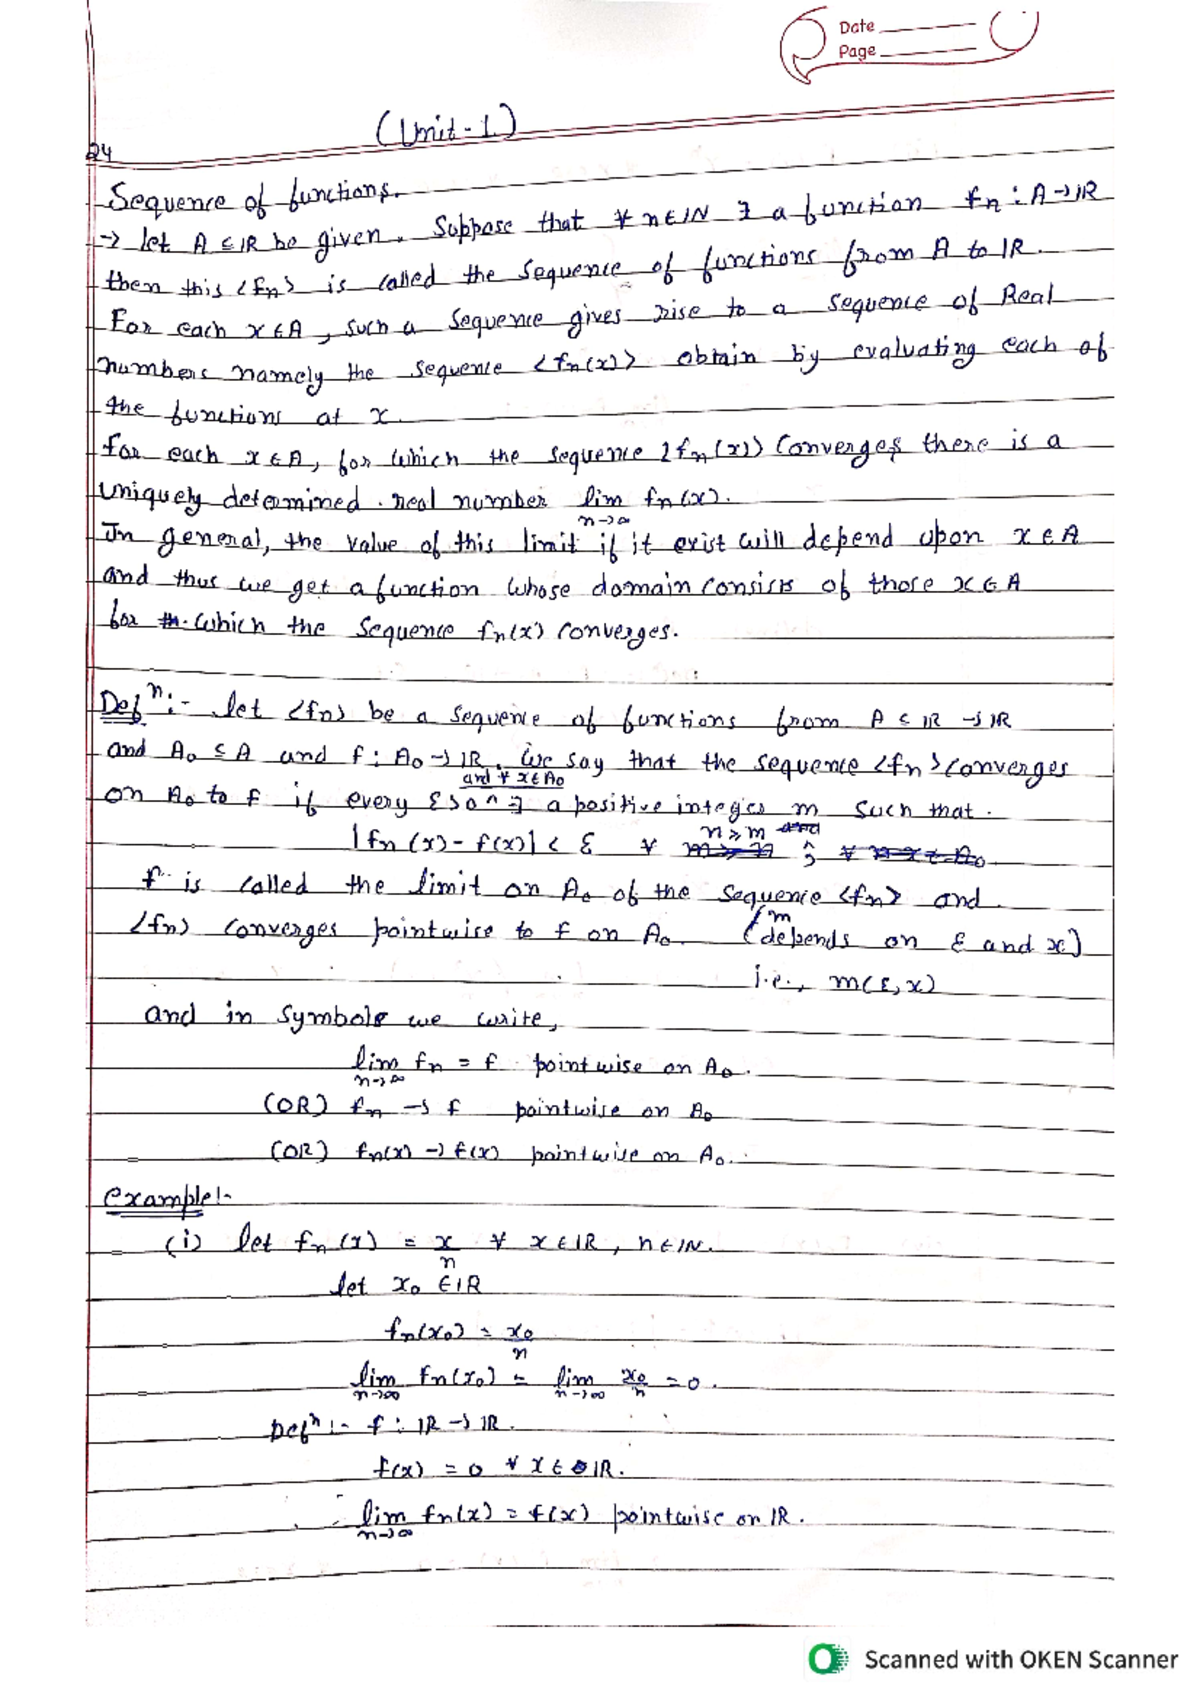 Date
Page
(Unit-1.)
24
Sequence of functions.
→ let A ⊆ IR be given. Suppose that ∀ n∈IN ∃ a function fn : A→IR
then this <fn> is called the sequence of functions from A to IR.
For each x∈A, such a sequence gives rise to a sequence of Real
numbers namely the sequence <fn(x)> obtain by evaluating each of
the functions at x.
for each x∈A, for which the sequence <fn(x)> Converges there is a
uniquely determined real number lim n→∞ fn(x).
In general, the value of this limit if it exist will depend upon x∈A
and thus we get a function whose domain consists of those x∈A
for which the sequence fn(x) converges.
Defn:- let <fn> be a sequence of functions from A ⊆ IR → IR
and A₀ ⊆ A and f : A₀ → IR. We say that the sequence <fn> converges
on A₀ to f if every ε>0 ^ and ∀ x∈A₀ ∃ a positive integer m such that.
|fn(x) - f(x)| < ε ∀ n≥m
f is called the limit on A₀ of the sequence <fn> and
<fn> converges pointwise to f on A₀ (m depends on ε and x)
i.e., m(ε,x)
and in symbols we write,
lim n→∞ fn = f pointwise on A₀.
(OR) fn → f pointwise on A₀
(OR) fn(x) → f(x) pointwise on A₀.
Example:-
(i) let fn(x) = x/n ∀ x∈IR, n∈IN.
let x₀ ∈ IR
fn(x₀) = x₀/n
lim n→∞ fn(x₀) = lim n→∞ x₀/n = 0.
Defn:- f : IR → IR.
f(x) = 0 ∀ x∈IR.
lim n→∞ fn(x) = f(x) pointwise on IR.
Scanned with OKEN Scanner